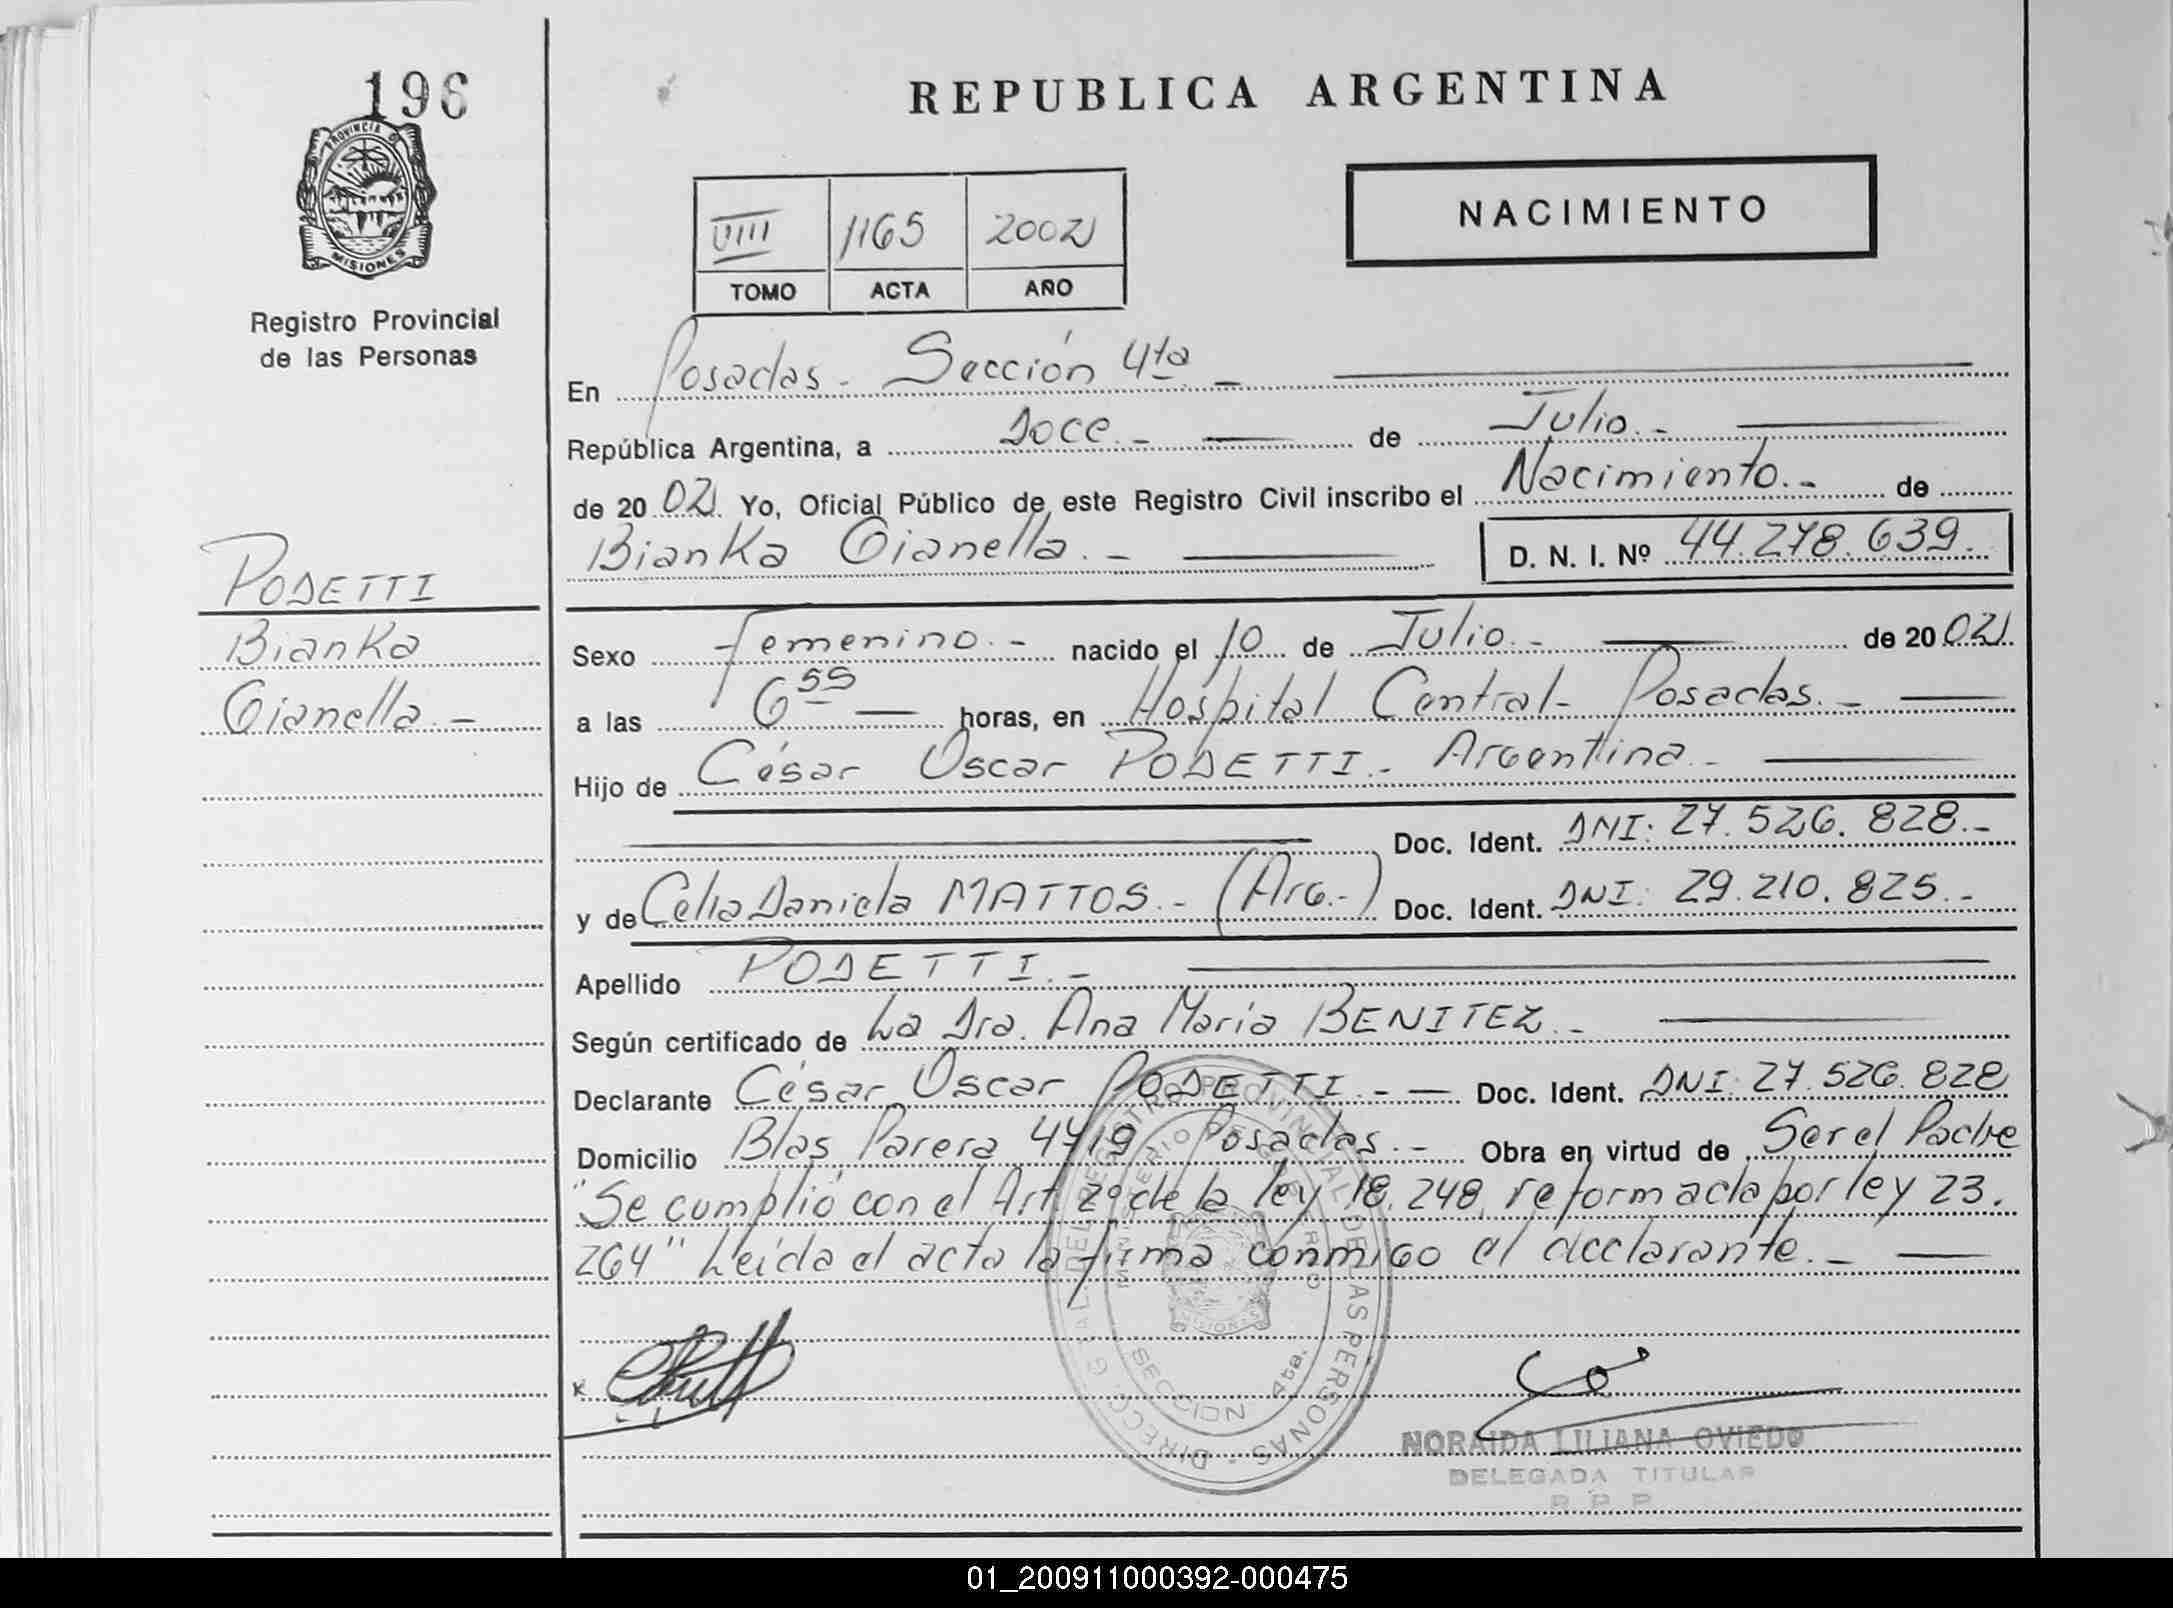 196
PROVINCIA DE
MISIONES
Registro Provincial
de las Personas
PODETTI
Bianka
Gianella.-
REPUBLICA ARGENTINA
VIII 1165 2002
TOMO ACTA AÑO
NACIMIENTO
En Posadas - Sección 4ta -
República Argentina, a Doce.- de Julio.-
de 20 02 Yo, Oficial Público de este Registro Civil inscribo el Nacimiento.- de
Bianka Gianella.- D. N. I. Nº 44.278.639.
Sexo Femenino.- nacido el 10 de Julio.- de 20 02
a las 6 55 horas, en Hospital Central - Posadas.-
Hijo de César Oscar PODETTI.- Argentina.-
Doc. Ident. DNI: 27.526.828.-
y de Celia Daniela MATTOS.- (Arg.-) Doc. Ident. DNI: 29.210.825.-
Apellido PODETTI.-
Según certificado de La Dra. Ana María BENITEZ.-
Declarante César Oscar PODETTI.- Doc. Ident. DNI: 27.526.828
Domicilio Blas Parera 4419 Posadas.- Obra en virtud de Ser el Padre
"Se cumplió con el Art. 2º de la ley 18.248, reformada por ley 23.
264" Leída el acta la firma conmigo el declarante.-
DIRECC. GRAL. DEL REGISTRO PROVINCIAL DE LAS PERSONAS
SECCION 4ta.
MISIONES
NORAIDA LILIANA OVIEDO
DELEGADA TITULAR
R P P
01_200911000392-000475